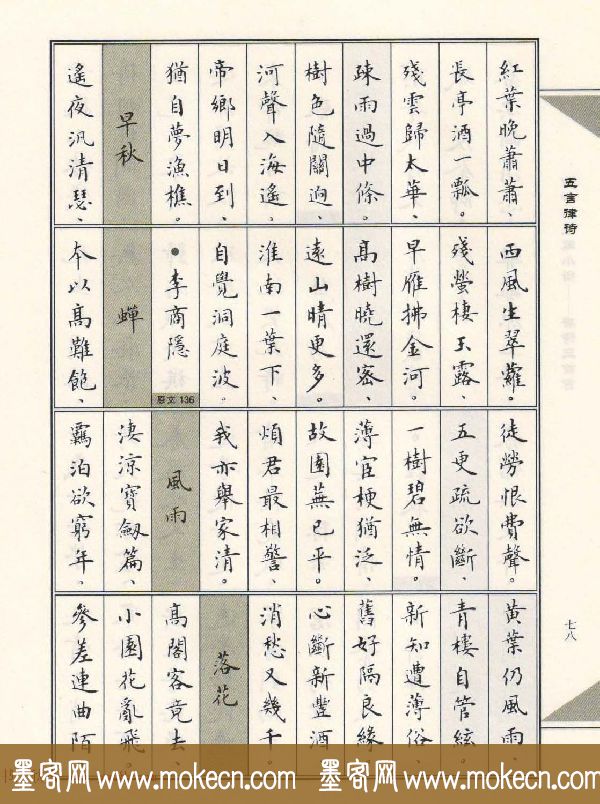 五言律詩
紅葉晚蕭蕭、
長亭酒一瓢。
殘雲歸太華、
疎雨過中條。
樹色隨關迥、
河聲入海遙。
帝鄉明日到、
猶自夢漁樵。
早秋
遙夜汎清瑟、
西風生翠蘿。
殘螢棲玉露、
早雁拂金河。
高樹曉還密、
遠山晴更多。
淮南一葉下、
自覺洞庭波。
●李商隱
原文 136
蟬
本以高難飽、
徒勞恨費聲。
五更疏欲斷、
一樹碧無情。
薄宦梗猶泛、
故園蕪已平。
煩君最相警、
我亦舉家清。
風雨
淒涼寶劍篇、
羈泊欲窮年。
黃葉仍風雨、
青樓自管絃。
新知遭薄俗、
舊好隔良緣。
心斷新豐酒、
消愁又幾千。
落花
高閣客竟去、
小園花亂飛。
參差連曲陌
七八
墨客网 www.mokecn.com 墨客网 www.mokecn.com